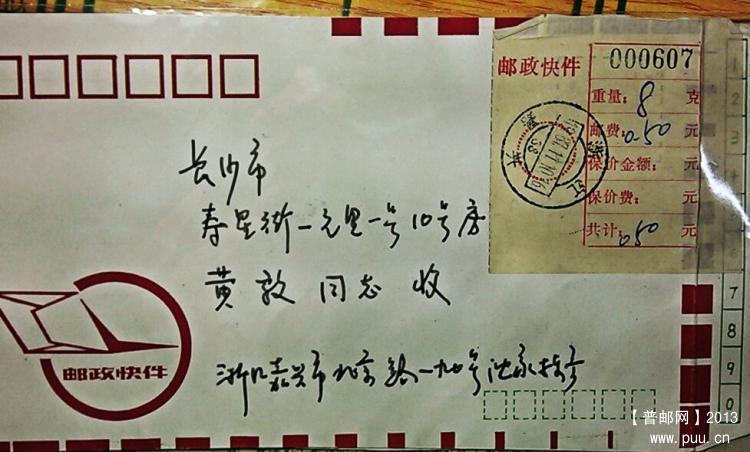 邮政快件 000607
重量: 8 克
邮费: 0.50 元
保价金额: 元
保价费: 元
共计: 0.50 元
长沙市
寿星街一元里一号10号房
黄敦同志 收
邮政快件
浙江嘉兴市北京路一九〇号沈
1
2
3
7
8
9
0
【普邮网】2013
www.puu.cn